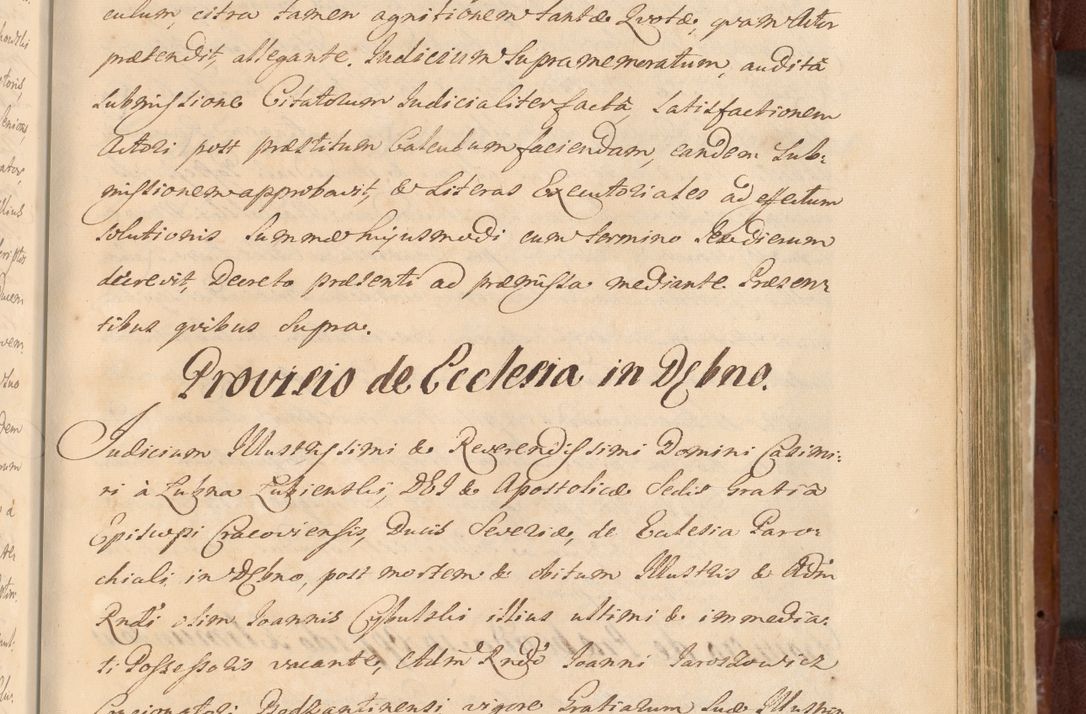 culum, citra tamen agnitionem tantæ Quotæ, quam Actor
prætendit, allegante. Judicium supramemoratum, audita
submissione Citatorum Judicialiter facta, satisfactionem
Actori post præstitum Calculum faciendam, eandem sub:
missionem approbavit, & Literas Executoriales ad effectum
solutionis summæ hujusmodi cum termino
decrevit, Decreto præsenti ad præmissa mediante. Præsen:
tibus quibus supra.
Provisio de Ecclesia in Dębno.
Judicium Illustrissimi & Reverendissimi Domini Casimi:
ri à Łubna Łubienski, DEI & Apostolicæ Sedis Gratiâ
Episcopi Cracoviensis, Ducis Severiæ, de Ecclesia Paro:
chiali in Dębno, post mortem & obitum Illustris & Adm
Rndi olim Joannis Cybulski illius ultimi & immedia:
ti Possessoris vacante, Adm Rndo Joanni Jaroszowicz
vigore Gratiarum suæ Illustrm